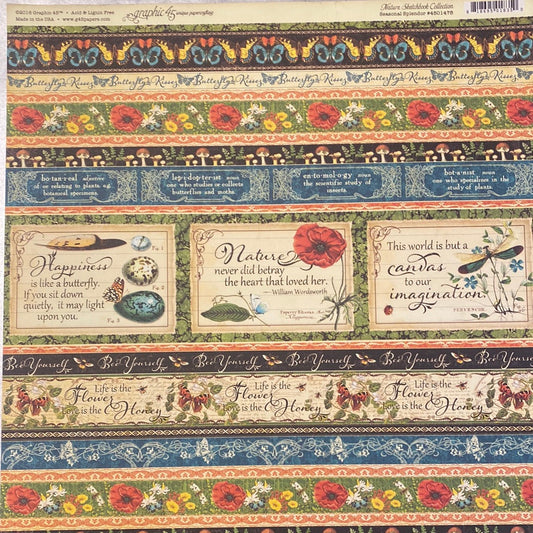 ©2016 Graphic 45™ • Acid & Lignin Free
Made in the USA • www.g45papers.com
graphic 45
Nature Sketchbook Collection
Seasonal Splendor #4501475
Butterfly Kisses Butterfly Kisses Butterfly Kisses Butterfly Kisses Butterfly Kisses
bo·tan·real adjective
of or relating to plants e.g.
botanical specimens.
lep·i·dop·ter·ist noun
one who studies or collects
butterflies and moths.
en·to·mol·o·gy noun
the scientific study of
insects.
bot·a·nist noun
one who specializes in the
study of plants.
Fig. 1
Happiness
is like a butterfly.
If you sit down
quietly, it may light
upon you.
Fig. 2
Fig. 3
Nature
never did betray
the heart that loved her.
—William Wordsworth
This world is but a
canvas
to our
imagination.
PERVENCHE.
Bee Yourself Bee Yourself Bee Yourself Bee Yourself
Life is the
Flower
Love is the Honey
Life is the
Flower
Love is the Honey
Life is the
Flower
Love is the Honey